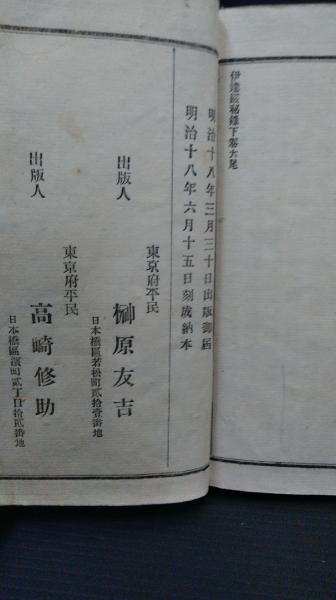 伊達顕秘録下巻大尾
明治十八年三月三十日出版御届
明治十八年六月十五日刻成納本
東京府平民
出版人
榊原友吉
日本橋區若松町貳拾壹番地
東京府平民
出版人
高崎修助
日本橋區濱町貳丁目拾貳番地